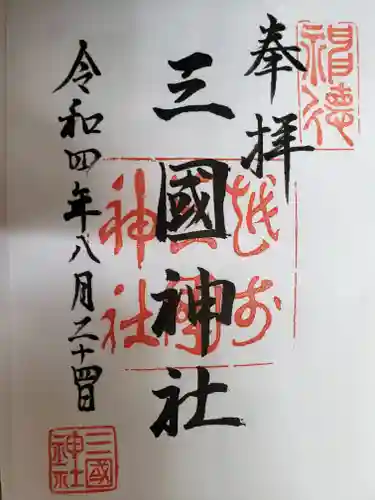 奉拝
神徳
三國神社
越前
三國
神社
令和四年八月二十四日
三國
神社